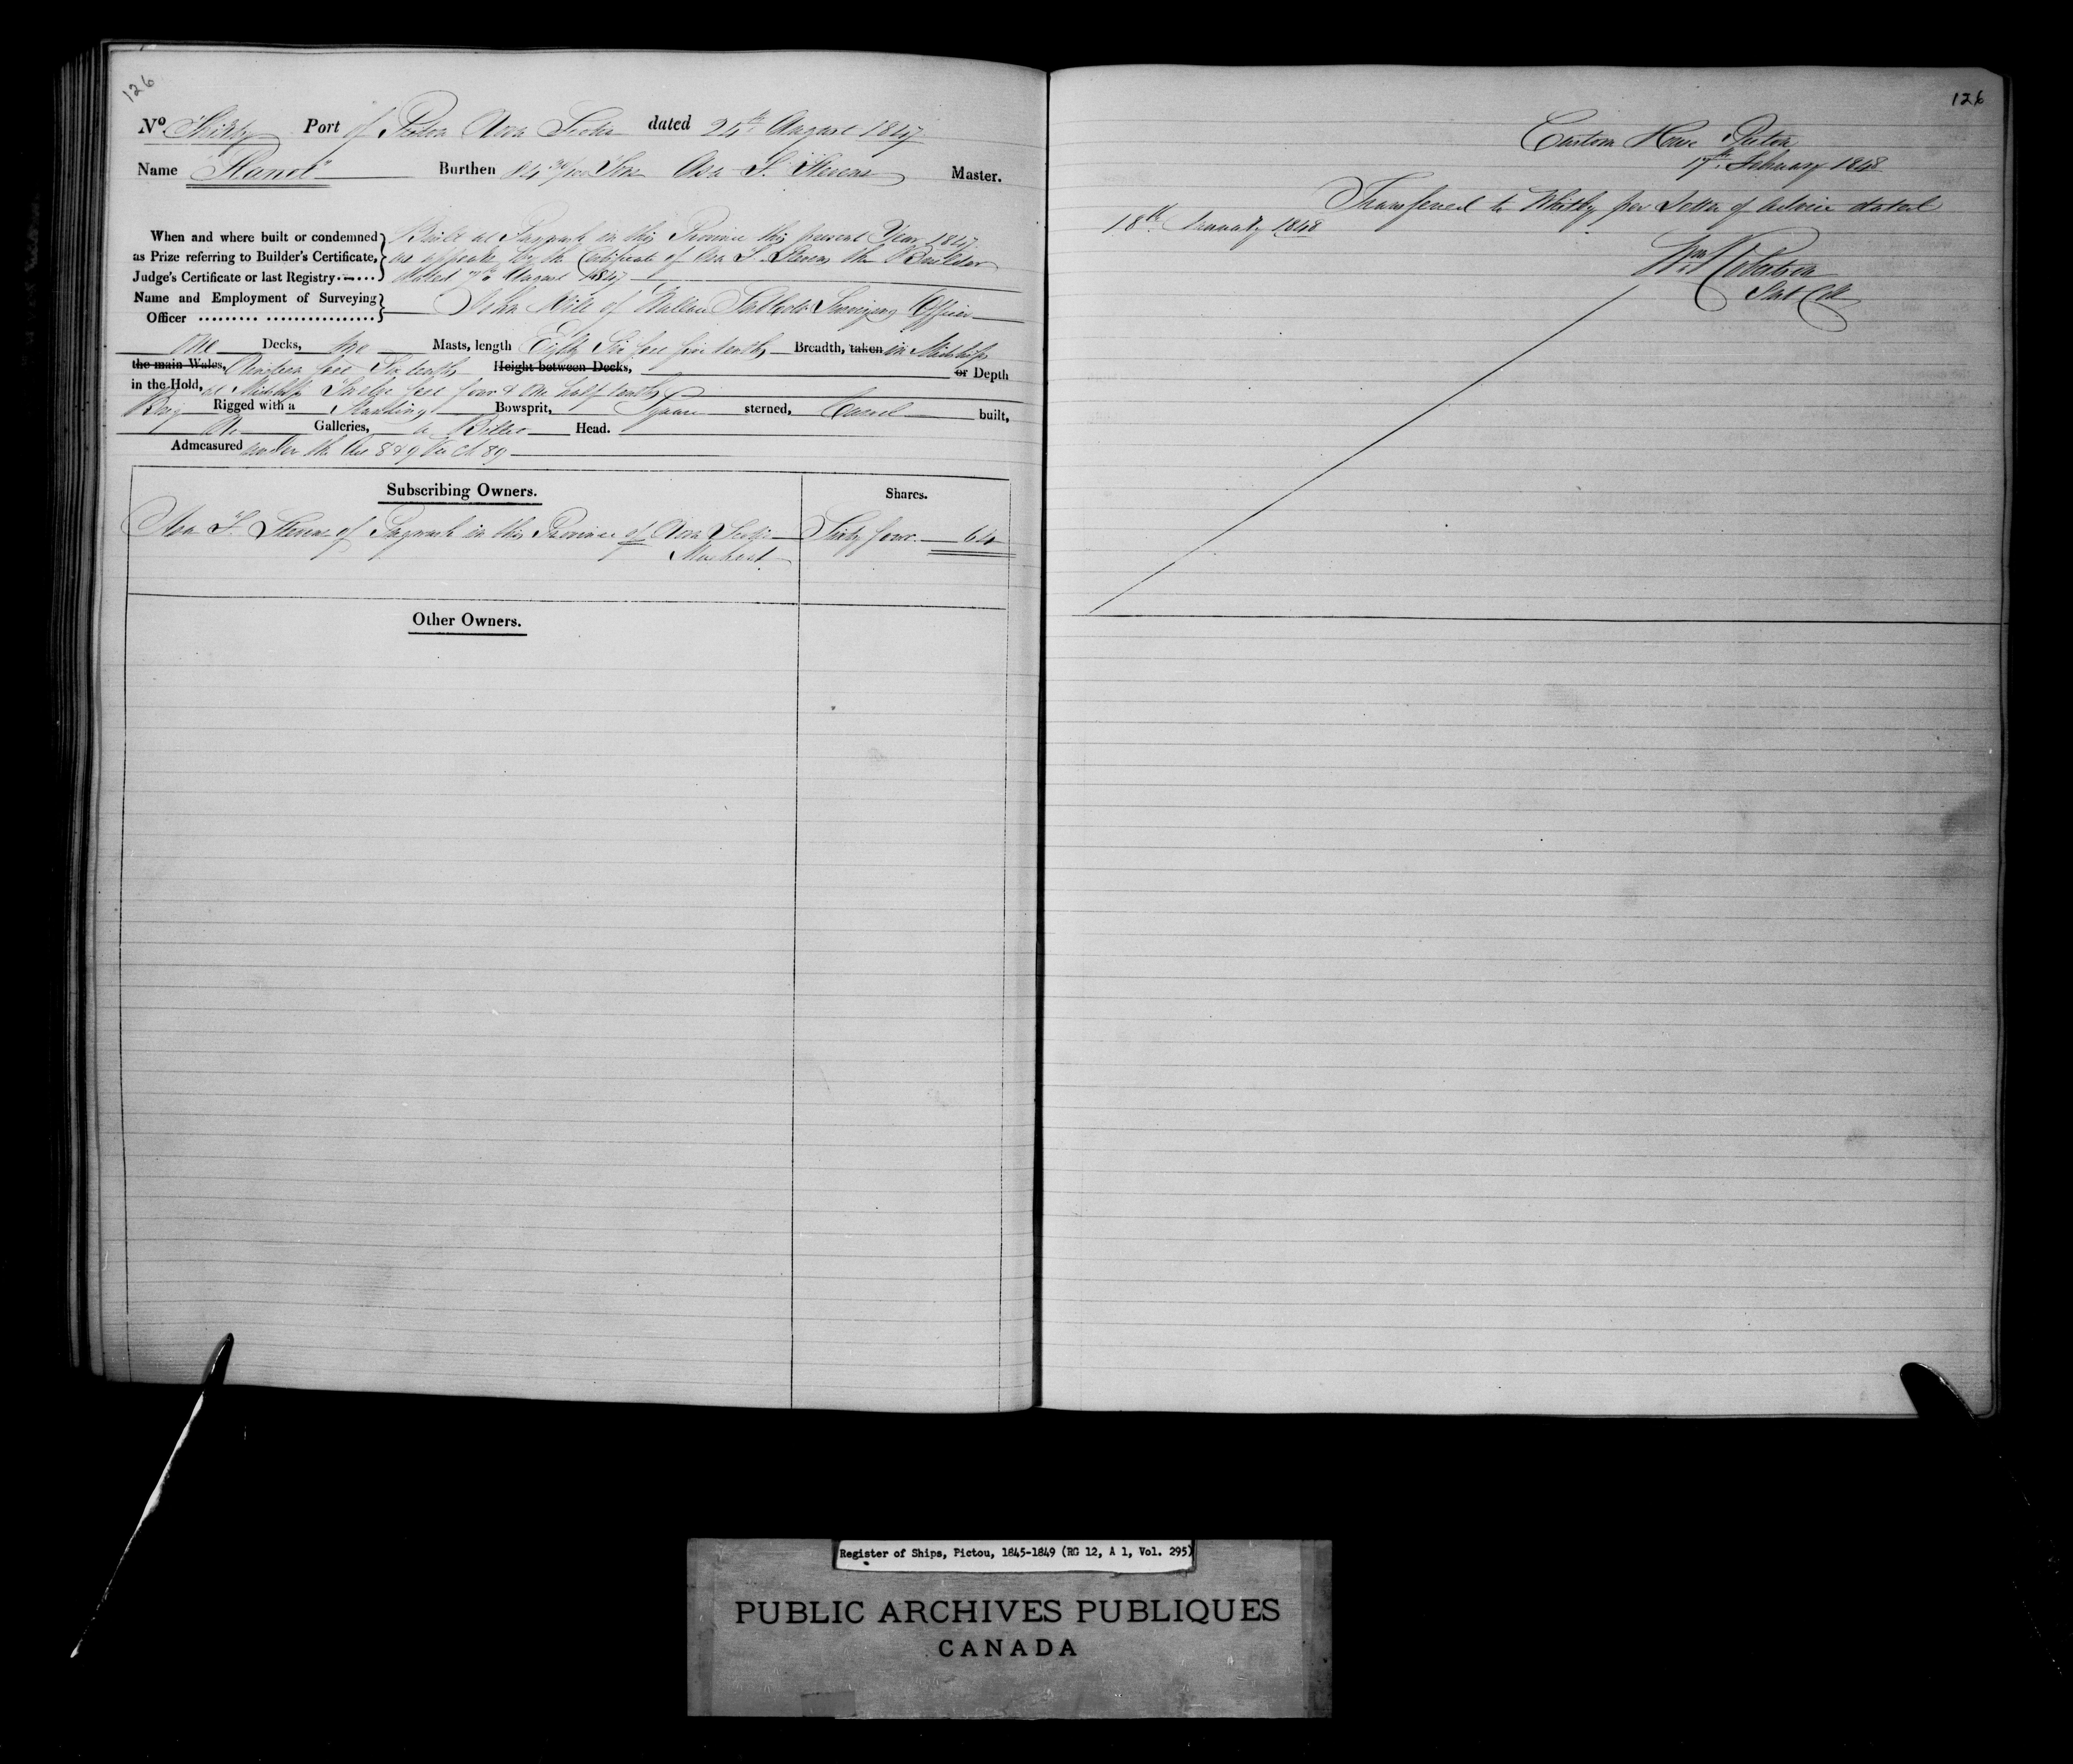 126
Nº Thirty Port of Pictou Nova Scotia dated 24th August 1847
Name "Planet" Burthen Tons Asa Stevens Master.
When and where built or condemned
as Prize referring to Builder's Certificate,
Judge's Certificate or last Registry
Built at Pugwash in this Province this present Year 1847
as appears by the Certificate of Asa Stevens the Builder
dated August 1847
Name and Employment of Surveying
Officer
John of Wallace Surveying Officer
One Decks, two Masts, length Eighty Six feet five tenths Breadth, taken in Midships
the main Wales, Nineteen feet Six tenths Height between Decks, or Depth
in the Hold, at Midships Twelve feet four & one half tenths
Brig Rigged with a Standing Bowsprit, Square sterned, Carvel built,
No Galleries, a Billet Head.
Admeasured under the Act 8 & 9 Vic Ch 89
Subscribing Owners. Shares.
Asa Stevens of Pugwash in this Province of Nova Scotia Sixty four 64
Merchant
Other Owners.
126
Custom House Pictou
17th February 1848
Transferred to Whitby per Letter of Advice dated
18th January 1848
Wm Robertson
Register of Ships, Pictou, 1845-1849 (RG 12, A 1, Vol. 295)
PUBLIC ARCHIVES PUBLIQUES
CANADA